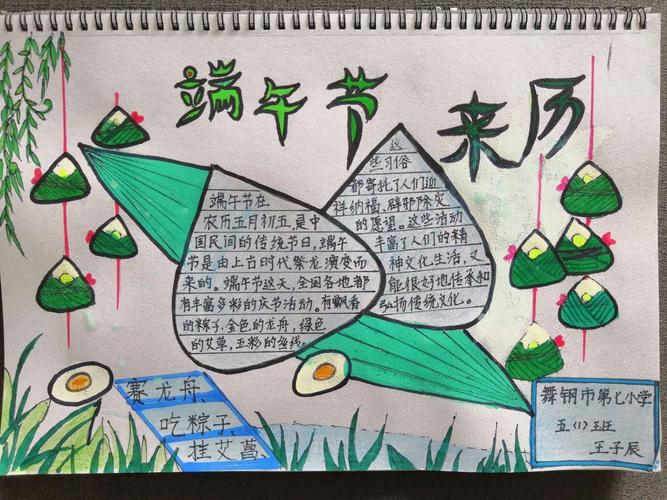 端午节 来历
端午节在
农历五月初五,是中
国民间的传统节日,端午
节是由上古时代祭龙演变而
来的。端午节这天,全国各地都
有丰富多彩的庆节活动。有飘香
的粽子,金色的龙舟,绿色
的艾草,五彩的丝线
这
些习俗
都寄托了人们迎
祥纳福、辟邪除灾
的愿望。这些活动
丰富了人们的精
神文化生活,又
能很好地传承和
弘扬传统文化。
赛龙舟、
吃粽子、
挂艾蒿、
舞钢市第七小学
五(1)班
王子辰